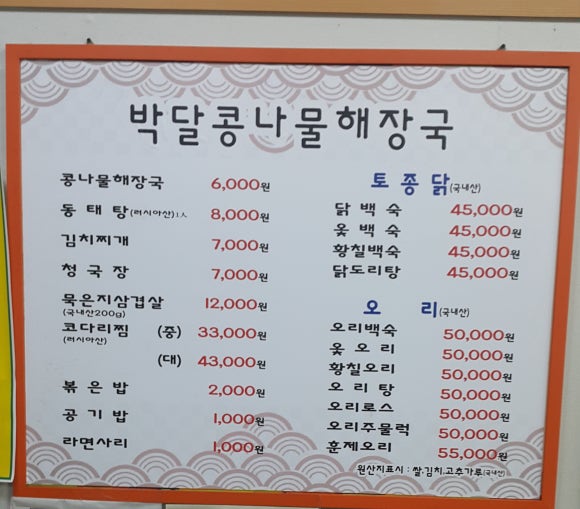 박달콩나물해장국
콩나물해장국 6,000원
동태탕(러시아산)1人 8,000원
김치찌개 7,000원
청국장 7,000원
묵은지삼겹살 12,000원
(국내산200g)
코다리찜 (중) 33,000원
(러시아산)
(대) 43,000원
볶은밥 2,000원
공기밥 1,000원
라면사리 1,000원
토종닭(국내산)
닭백숙 45,000원
옻백숙 45,000원
황칠백숙 45,000원
닭도리탕 45,000원
오리(국내산)
오리백숙 50,000원
옻오리 50,000원
황칠오리 50,000원
오리탕 50,000원
오리로스 50,000원
오리주물럭 50,000원
훈제오리 55,000원
원산지표시 : 쌀,김치,고추가루(국내산)